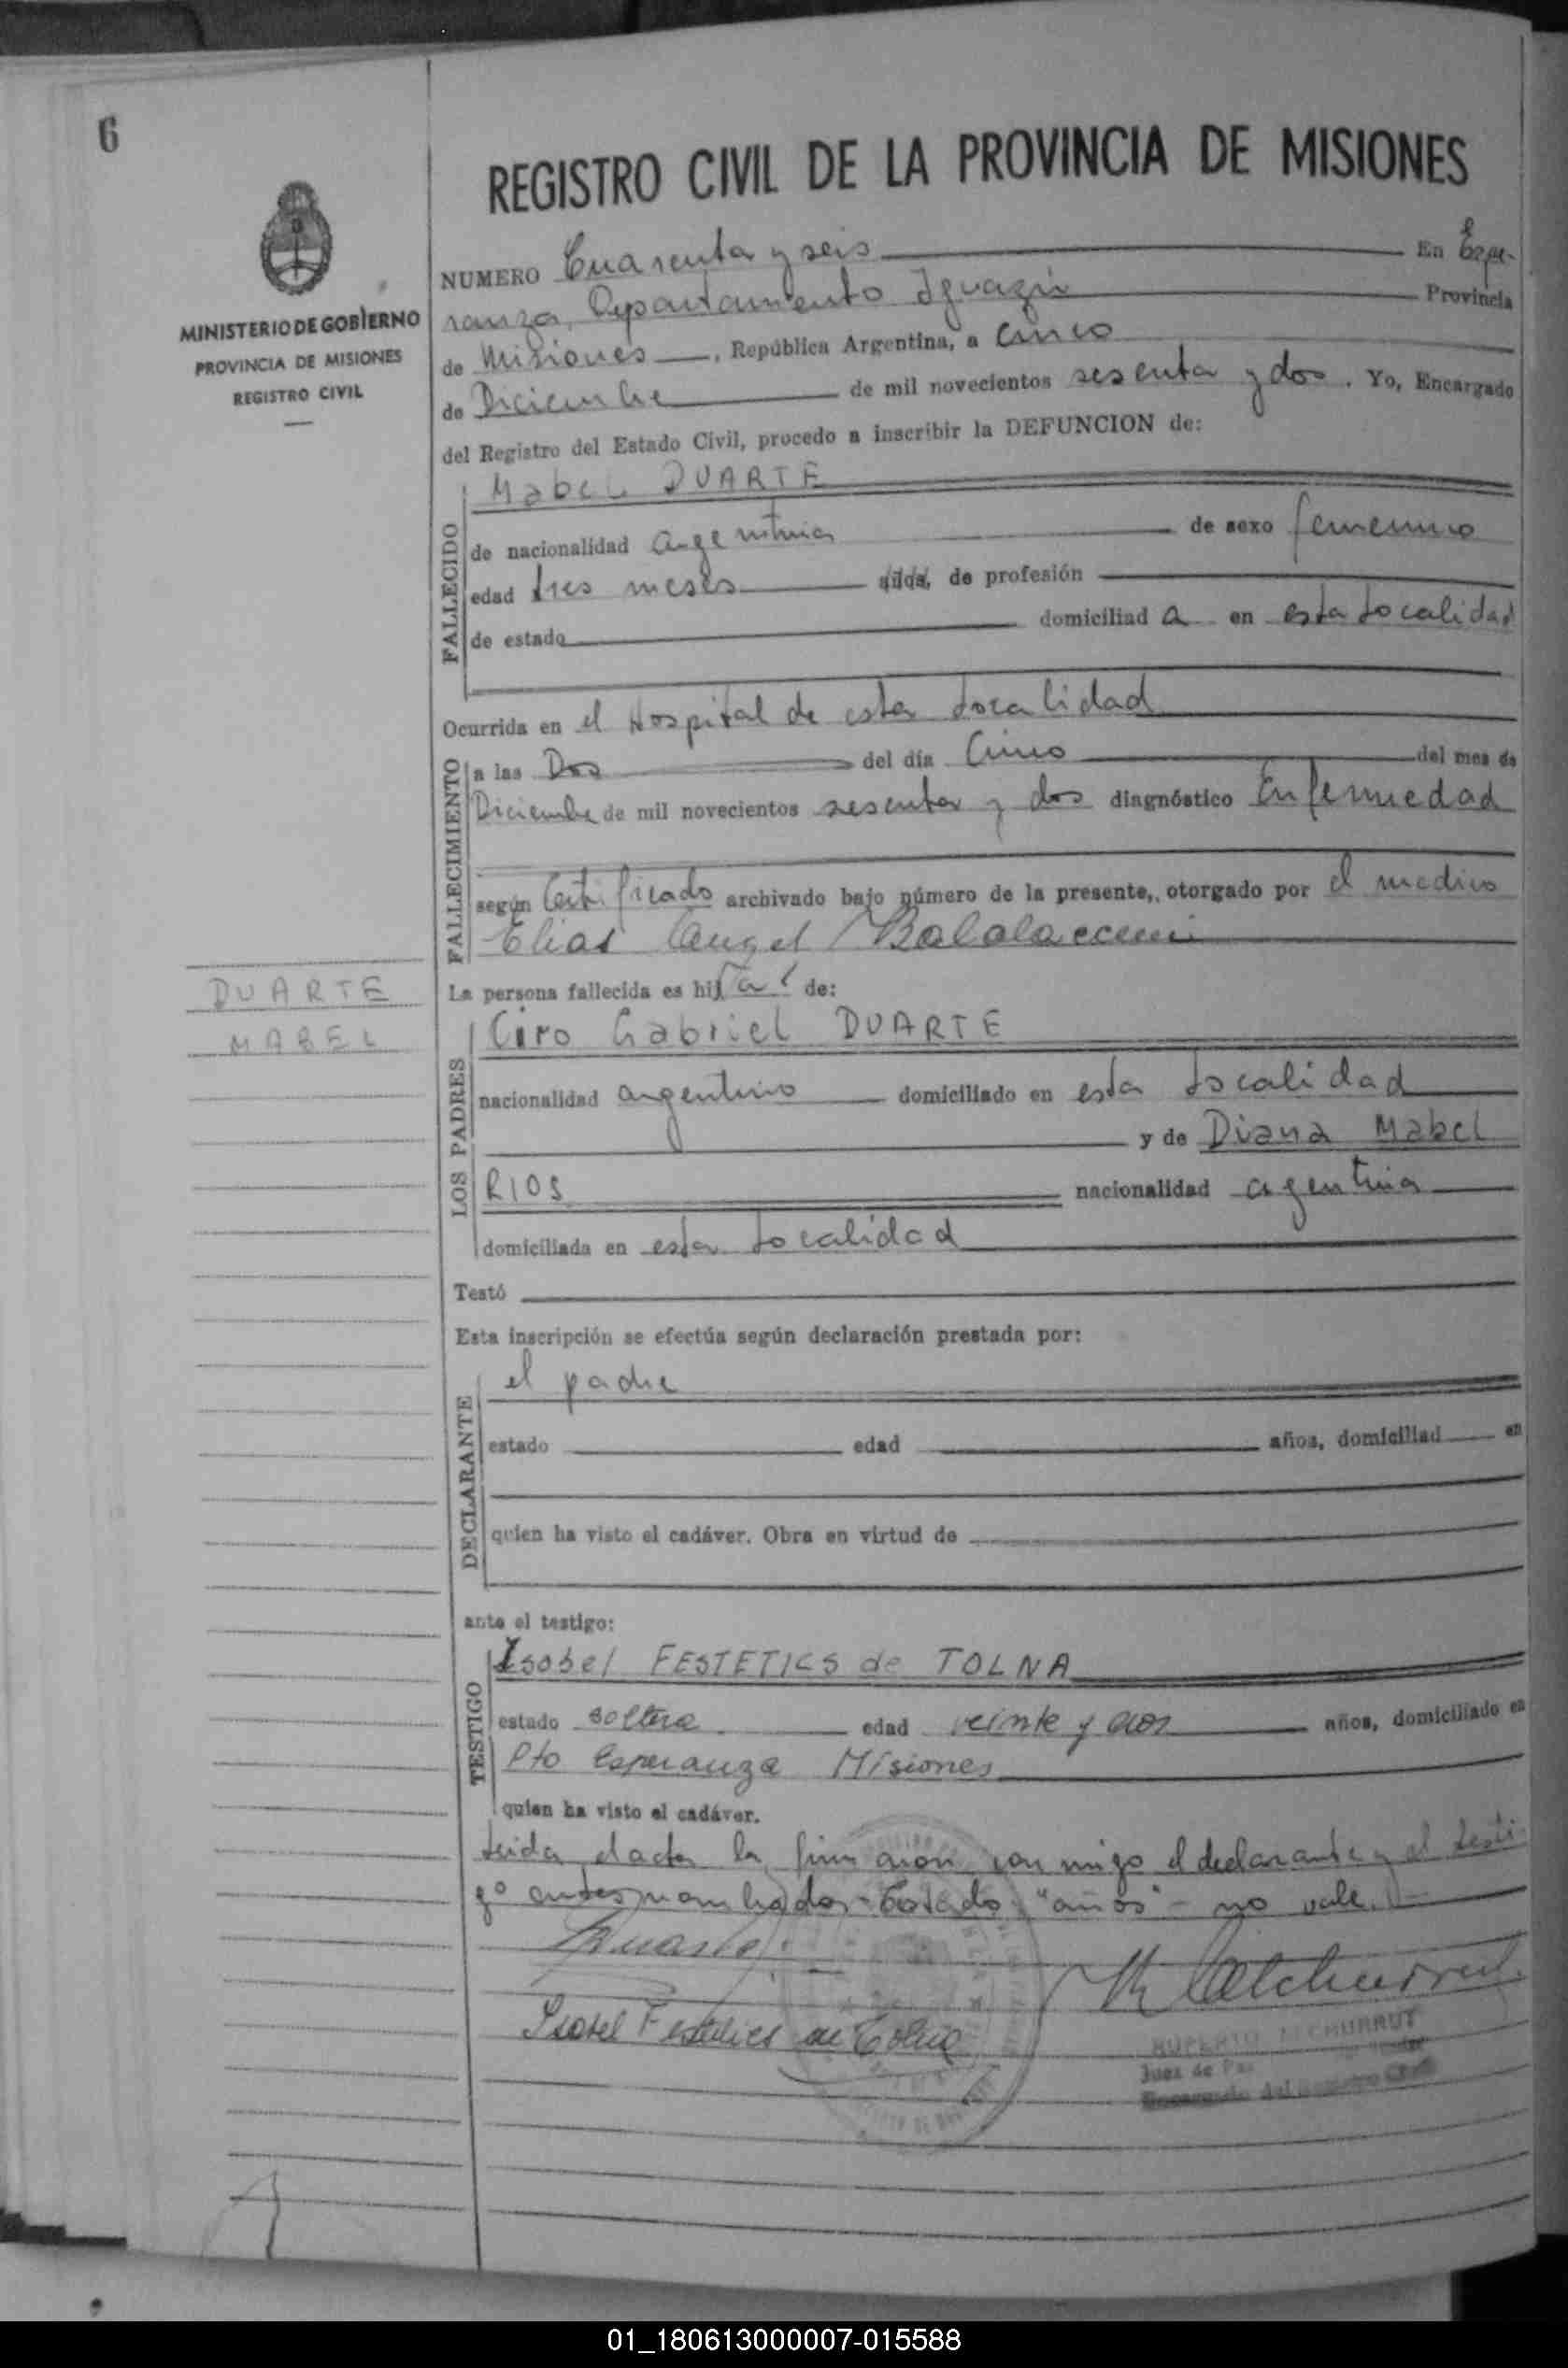 6
REGISTRO CIVIL DE LA PROVINCIA DE MISIONES
MINISTERIO DE GOBIERNO
PROVINCIA DE MISIONES
REGISTRO CIVIL
NUMERO Cuarenta y seis En Espe-
ranza, Departamento Iguazú Provincia
de Misiones, República Argentina, a cinco
de Diciembre de mil novecientos sesenta y dos. Yo, Encargado
del Registro del Estado Civil, procedo a inscribir la DEFUNCION de:
FALLECIDO
Mabel DUARTE
de nacionalidad argentina de sexo femenino
edad tres meses años, de profesión
de estado domiciliad a en esta localidad
Ocurrida en el Hospital de esta localidad
FALLECIMIENTO
a las Dos del día Cinco del mes de
Diciembre de mil novecientos sesenta y dos diagnóstico Enfermedad
según Certificado archivado bajo número de la presente, otorgado por el medico
Elias Angel
La persona fallecida es hija de:
DUARTE
MABEL
LOS PADRES
Ciro Gabriel DUARTE
nacionalidad argentino domiciliado en esta localidad
y de Diana Mabel
RIOS nacionalidad argentina
domiciliada en esta localidad
Testó
Esta inscripción se efectúa según declaración prestada por:
DECLARANTE
el padre
estado edad años, domiciliad en
quien ha visto el cadáver. Obra en virtud de
ante el testigo:
TESTIGO
Isabel FESTETICS de TOLNA
estado soltera edad veinte y dos años, domiciliado en
Pto Esperanza Misiones
quien ha visto el cadáver.
Leida el acta la firmaron conmigo el declarante y el testi-
go antes nombrados - Testado: "años" - no vale.
Duarte
Isabel Festetics de Tolna
RUPERTO ALCHURRUT
Juez de Paz
Encargado del Registro Civil
01_180613000007-015588